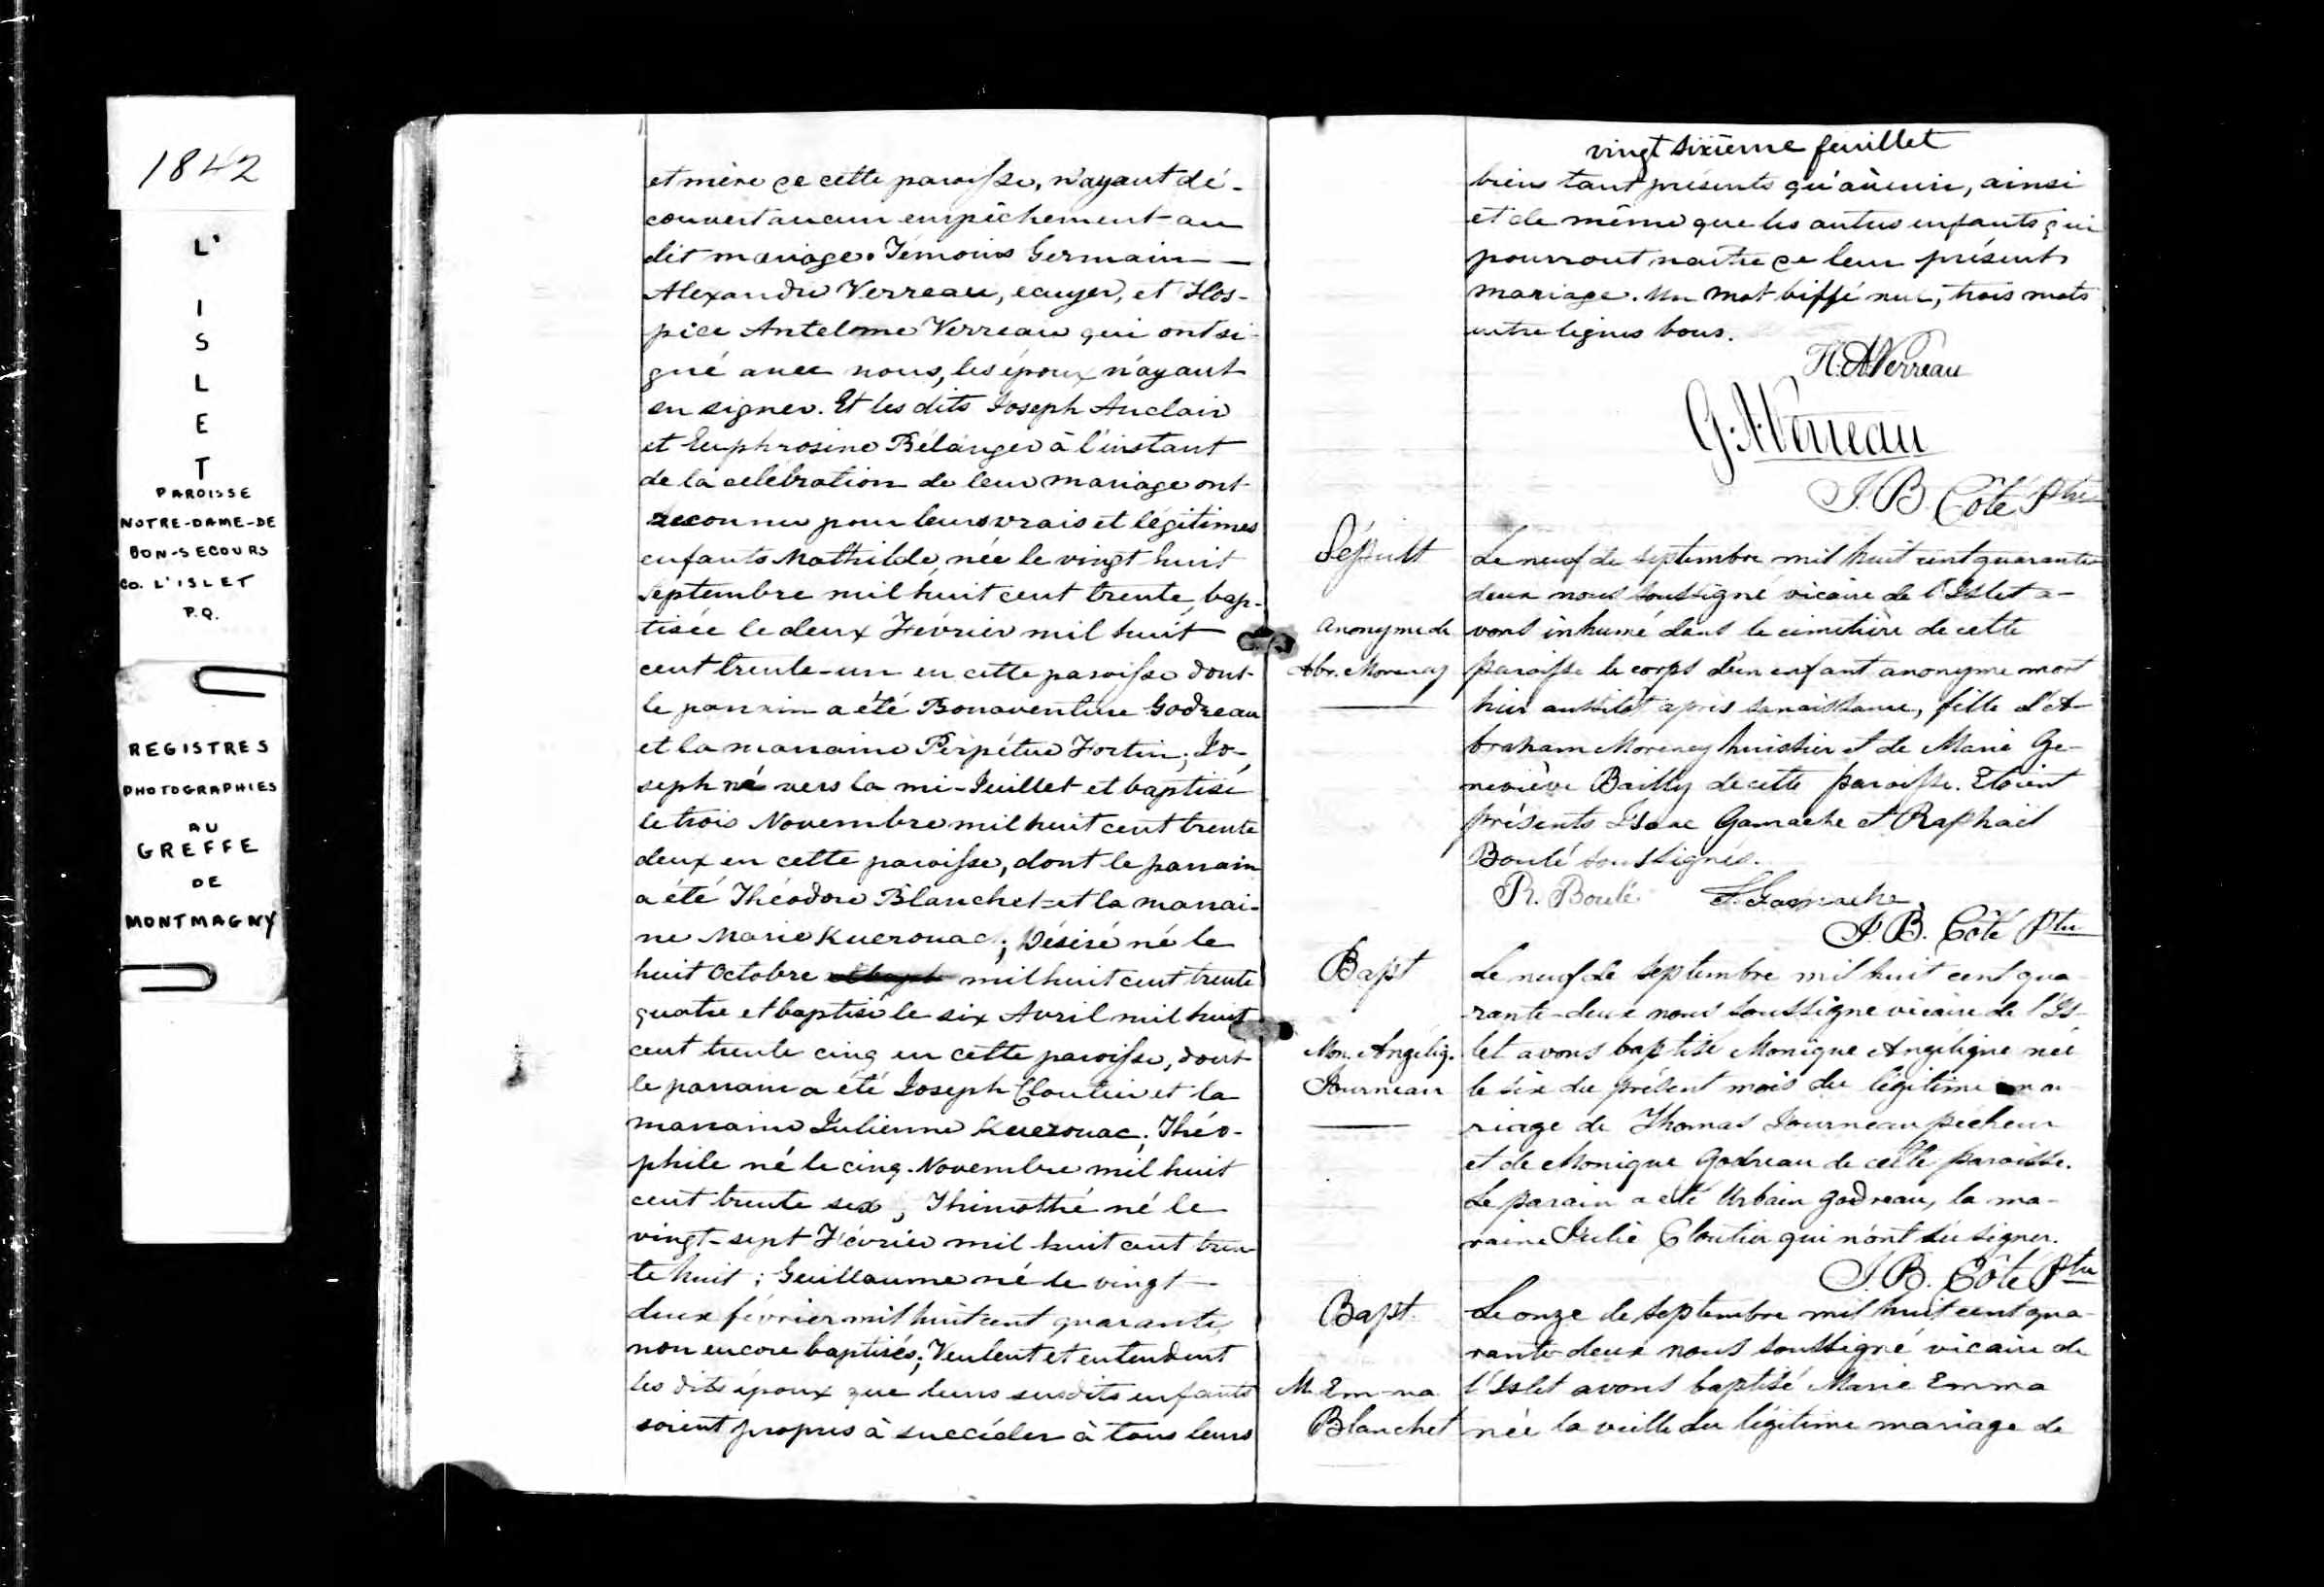 1842
L'
I
S
L
E
T
PAROISSE
NOTRE-DAME-DE
BON-SECOURS
CO. L'ISLET
P.Q.
REGISTRES
PHOTOGRAPHIES
AU
GREFFE
DE
MONTMAGNY
et mère de cette paroisse, n'ayant dé-
couvert aucun empêchement au
dit mariage. Témoins Germain
Alexandre Verreau, ecuyer, et Hos-
pice Antelme Verreau qui ont si-
gné avec nous, les époux n'ayant
su signer. Et les dits Joseph Auclair
et Euphrosine Bélanger à l'instant
de la celébration de leur mariage ont
reconnu pour leurs vrais et légitimes
enfants Mathilde, née le vingt huit
Septembre mil huit cent trente, bap-
tisée le deux Février mil huit
cent trente-un en cette paroisse dont
le parrain a été Bonaventure Godreau
et la marraine Perpétue Fortin; Jo-
seph né vers la mi-Juillet et baptisé
le trois Novembre mil huit cent trente
deux en cette paroisse, dont le parrain
a été Théodore Blanchet et la marrai-
ne Marie Kuerouac; Désiré né le
huit Octobre mil huit cent trente
quatre et baptisé le six Avril mil huit
cent trente cinq en cette paroisse, dont
le parrain a été Joseph Cloutier et la
marraine Julienne Kuerouac; Théo-
phile né le cinq Novembre mil huit
cent trente six, Thimothé né le
vingt-sept Février mil huit cent tren-
te huit; Guillaume né le vingt
deux février mil huit cent quarante,
non encore baptisés; Veulent et entendent
les dits époux que leurs susdits enfants
soient propres à succéder à tous leurs
vingt sixième feuillet
biens tant présents qu'à venir, ainsi
et de même que les autres enfants qui
pourront naitre de leur présent
mariage. Un mot biffé nul, trois mots
entre lignes bons.
H. A Verreau
G. A. Verreau
J. B. Côté Ptre
Sépult
anonyme de
Abr. Morency
Le neuf de septembre mil huit cent quarante
deux nous soussigné vicaire de l'Islet a-
vons inhumé dans le cimetière de cette
paroisse le corps d'un enfant anonyme mort
hier aussitot après sa naissance, fille d'A-
braham Morency huissier et de Marie Ge-
neviève Bailly de cette paroisse. Etoient
présents Isaac Gamache et Raphaël
Boulé soussignés.
R. Boulé I. Gamache
J. B. Côté Ptre
Bapt
Mon. Angéliq.
Fourneau
Le neuf de septembre mil huit cent qua-
rante-deux nous soussigné vicaire de l'Is-
let avons baptisé Monique Angélique née
le six du présent mois du légitime ma-
riage de Thomas Fourneau pêcheur
et de Monique Godreau de cette paroisse.
Le parain a été Urbain Godreau, la ma-
raine Julie Cloutier qui n'ont su signer.
J. B. Côté Ptre
Bapt.
M. Em-na
Blanchet
Le onze de septembre mil huit cent qua-
rante-deux nous soussigné vicaire de
l'Islet avons baptisé Marie Emma
née la veille du légitime mariage de